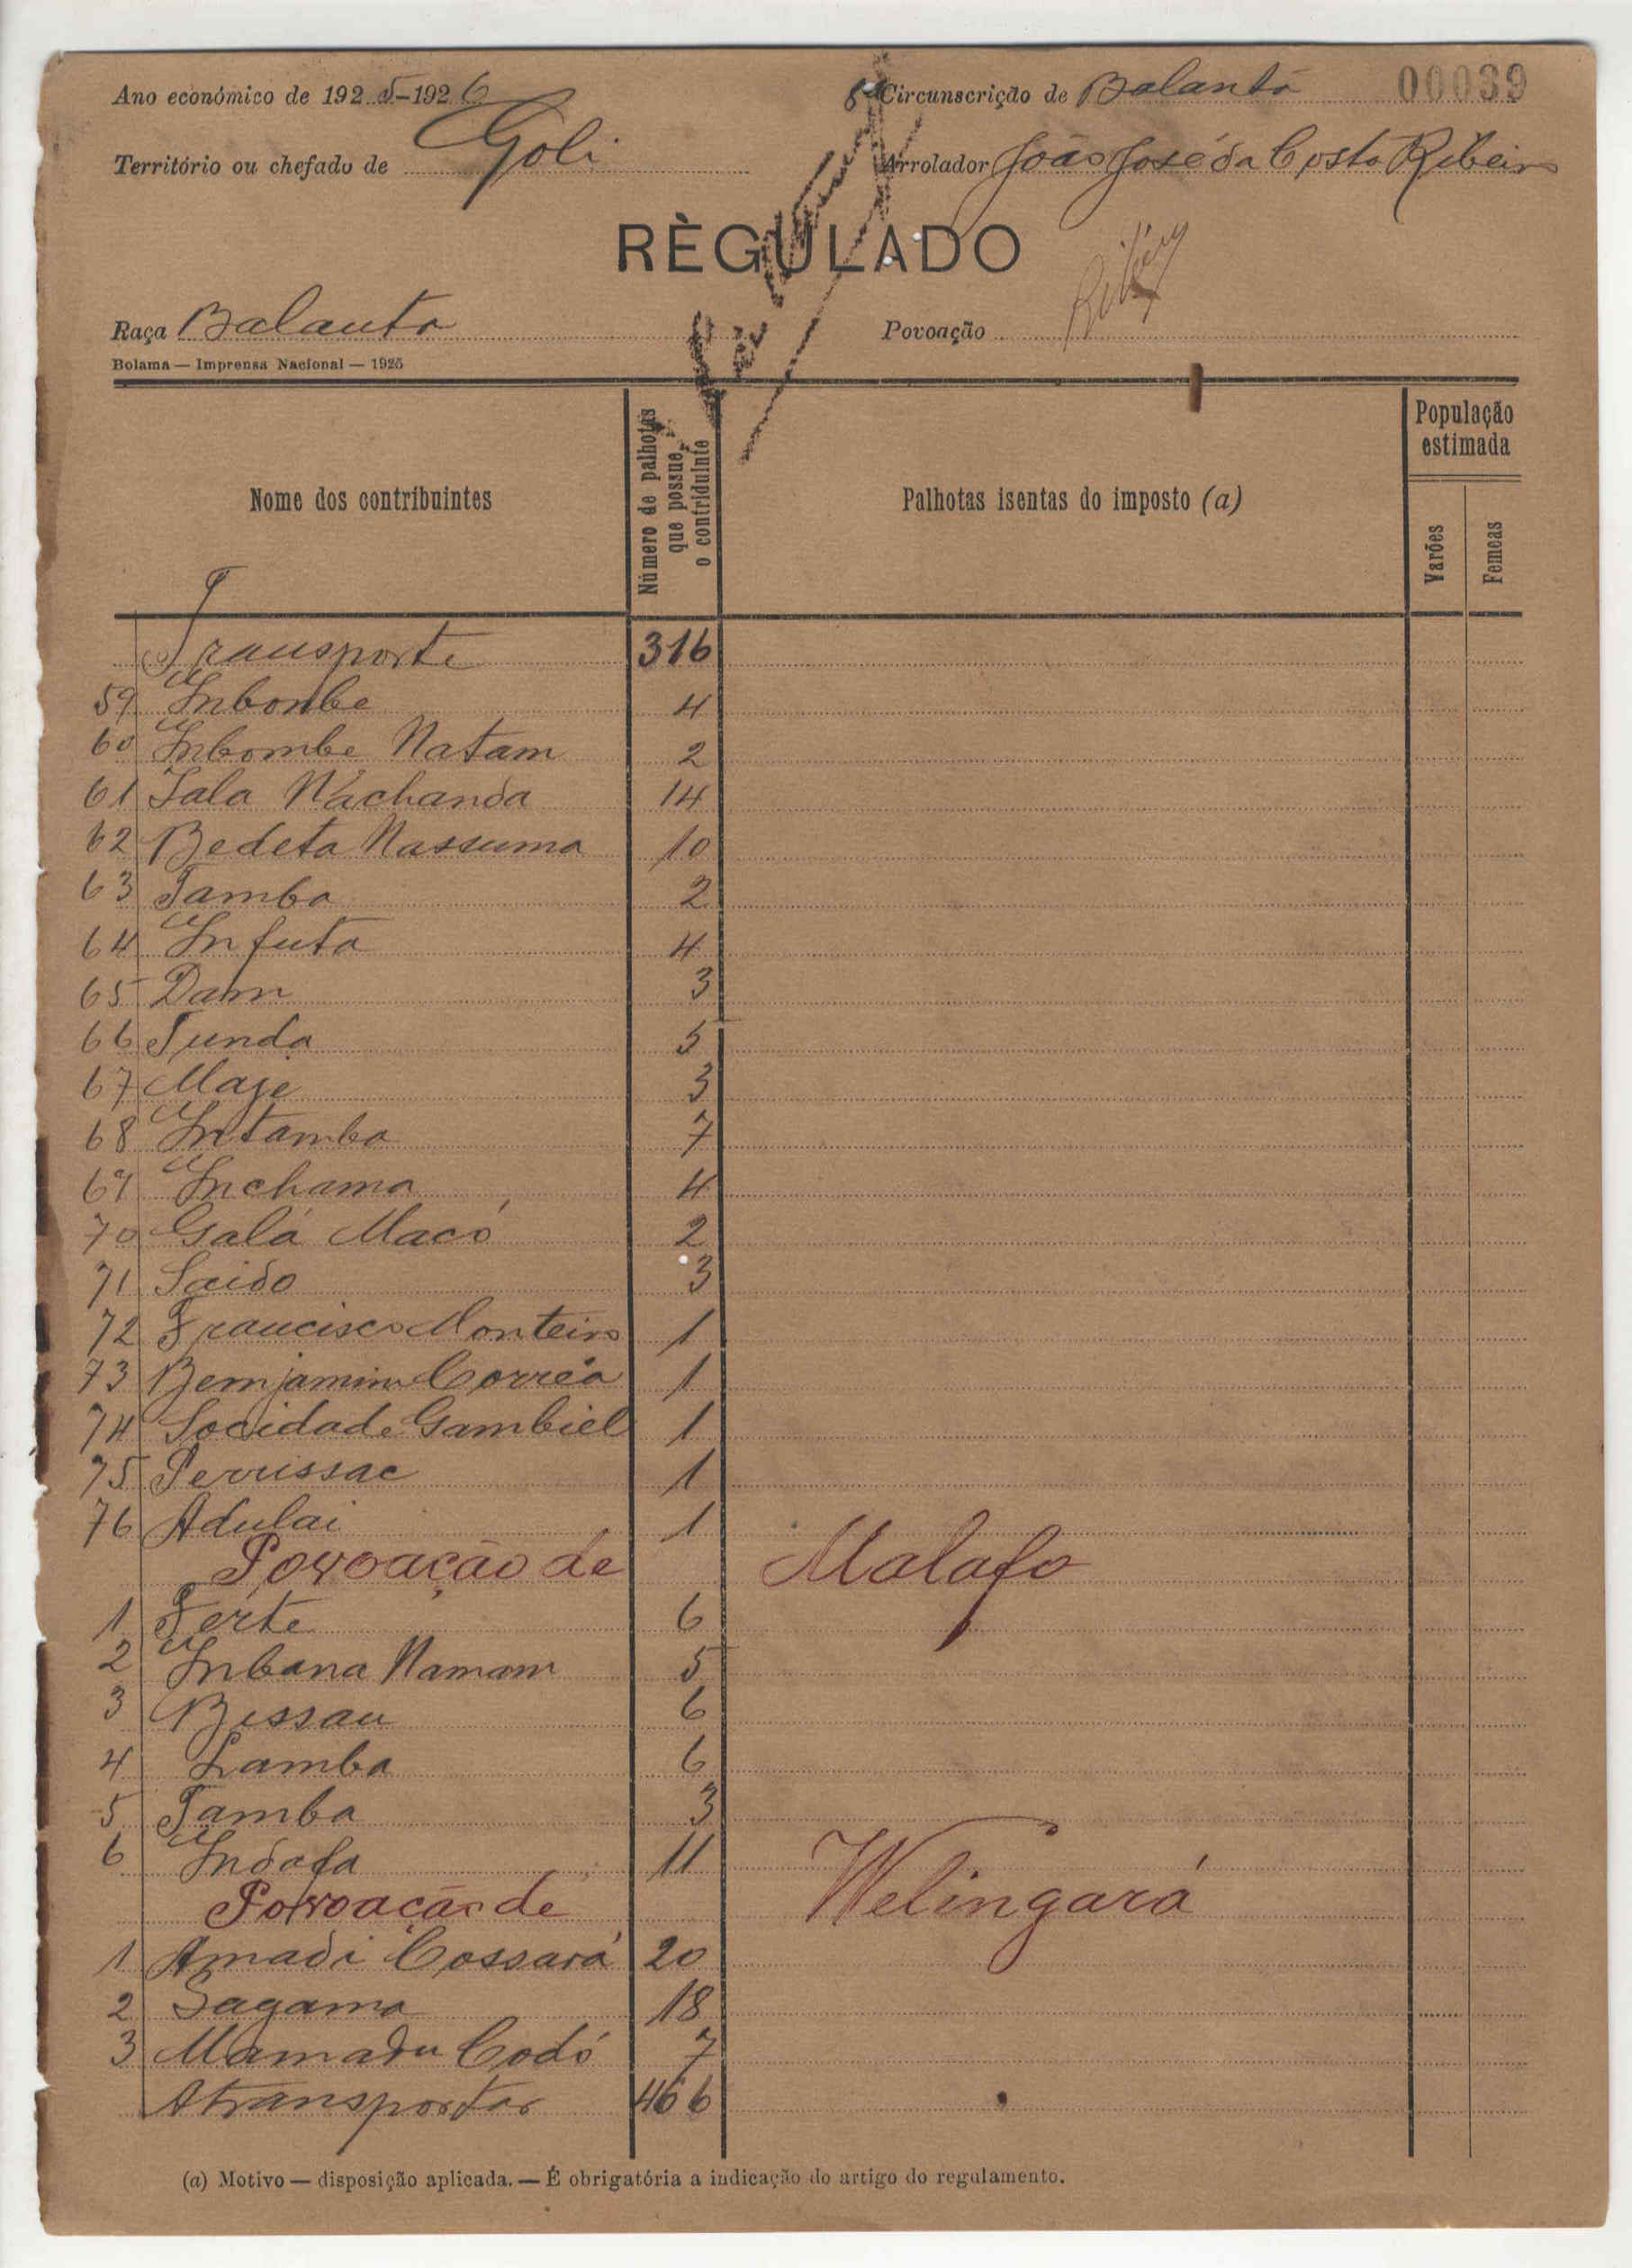 Ano económico de 1925-1926
Circunscrição de Balanta 00039
Território ou chefado de Goli
Arrolador João José da Costa Ribeiro
RÈGULADO
Raça Balanta
Povoação
Bolama — Imprensa Nacional — 1925
Nome dos contribuintes
Número de palhotas que possue o contriduinte
Palhotas isentas do imposto (a)
População estimada
Varões
Femeas
Transporte 316
59 Inbonbe 4
60 Inbombe Natam 2
61 Sala Nachanda 14
62 Bedeta Nassuma 10
63 Tamba 2
64 Infuta 4
65 Dam 3
66 Tunda 5
67 Maje 3
68 Intamba 7
69 Inchama 4
70 Galá Macó 2
71 Saido 3
72 Francisco Monteiro 1
73 Bemjamim Corrêa 1
74 Socidade Gambiel 1
75 Perrissac 1
76 Adulai 1
Povoação de Malafo
1 Ferte 6
2 Inbana Namam 5
3 Bissau 6
4 Lamba 6
5 Tamba 3
6 Indafa 11
Povoação de Welingará
1 Amadi Cossará 20
2 Sagama 18
3 Mamadu Codó 7
A transportar 466
(a) Motivo — disposição aplicada. — É obrigatória a indicação do artigo do regulamento.